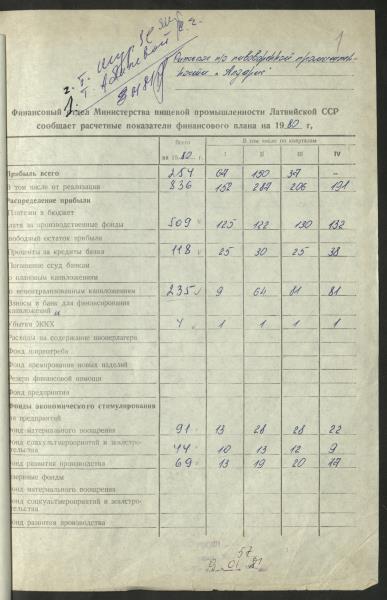 1
Рижское п/о пивоваренной промышлен-
ности „Алдарис"
Финансовый отдел Министерства пищевой промышленности Латвийской ССР
сообщает расчетные показатели финансового плана на 1980 г,
Всего на 1980 г. В том числе по кварталам
I II III IV
Прибыль всего 254 67 150 37 –
В том числе от реализации 836 152 287 206 191
Распределение прибыли
Платежи в бюджет
лата за производственные фонды 509 125 122 130 132
вободный остаток прибыли
Проценты за кредиты банка 118 25 30 25 38
Погашение ссуд банкам
о плановым капвложениям
о нецентрализованным капвложениям 235 9 64 81 81
Взносы в банк для финансирования
капвложений
Убытки ЖКХ 4 1 1 1 1
Расходы на содержание пионерлагеря
Фонд ширпотреба
Фонд премирования новых изделий
Резерв финансовой помощи
Фонд предприятия
Фонды экономического стимулирования
ля предприятий
онд материального поощрения 91 13 28 28 22
онд соцкультмероприятий и жилстро-
тельства 44 10 13 12 9
онд развития производства 69 13 19 20 17
онд материального поощрения
онд соцкультмероприятий и жилстро-
тельства
онд развития производства
57
9 01 81